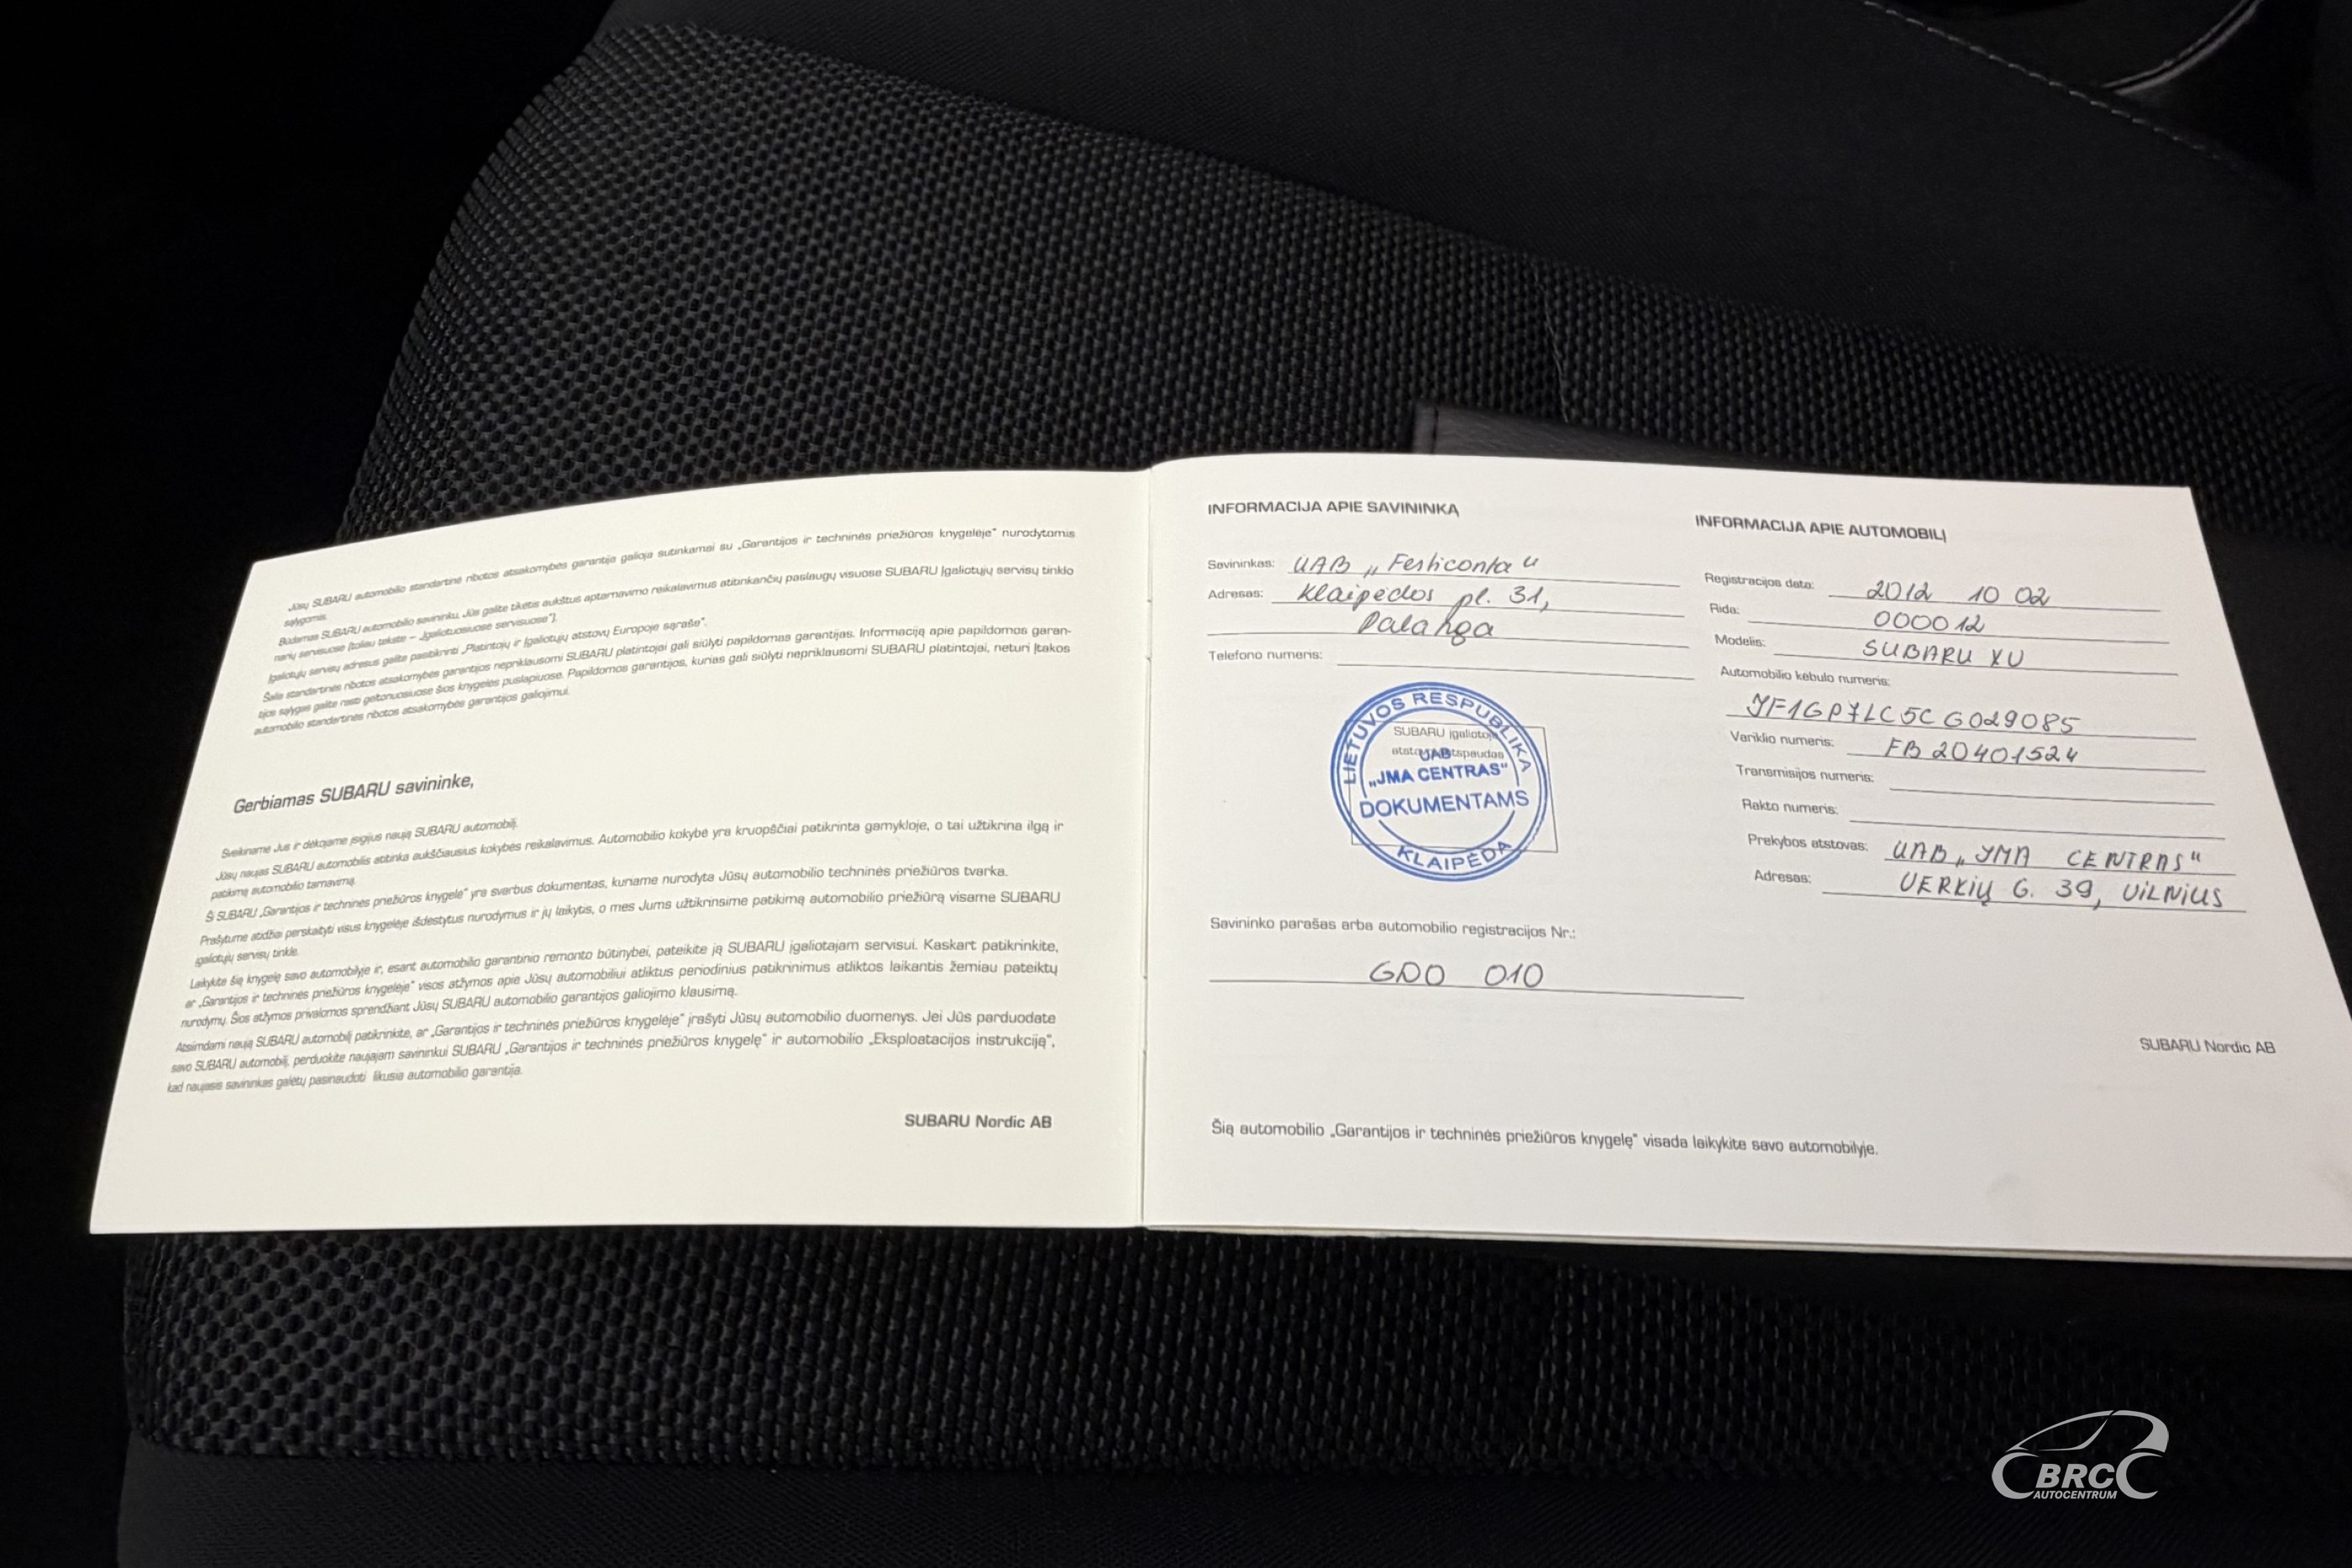 Jūsų SUBARU automobilio standartinė ribotos atsakomybės garantija galioja sutinkamai su „Garantijos ir techninės priežiūros knygelėje“ nurodytomis
sąlygomis.
Būdamas SUBARU automobilio savininku, Jūs galite tikėtis aukštus aptarnavimo reikalavimus atitinkančių paslaugų visuose SUBARU Įgaliotųjų servisų tinklo
narių servisuose (toliau tekste – „Įgaliotuosiuose servisuose“).
Įgaliotųjų servisų adresus galite pasitikrinti „Platintojų ir Įgaliotųjų atstovų Europoje sąraše“.
Šalia standartinės ribotos atsakomybės garantijos nepriklausomi SUBARU platintojai gali siūlyti papildomas garantijas. Informaciją apie papildomos garan-
tijos sąlygas galite rasti geltonuosiuose šios knygelės puslapiuose. Papildomos garantijos, kurias gali siūlyti nepriklausomi SUBARU platintojai, neturi įtakos
automobilio standartinės ribotos atsakomybės garantijos galiojimui.
Gerbiamas SUBARU savininke,
Sveikiname Jus ir dėkojame įsigijus naują SUBARU automobilį.
Jūsų naujas SUBARU automobilis atitinka aukščiausius kokybės reikalavimus. Automobilio kokybė yra kruopščiai patikrinta gamykloje, o tai užtikrina ilgą ir
patikimą automobilio tarnavimą.
Ši SUBARU „Garantijos ir techninės priežiūros knygelė“ yra svarbus dokumentas, kuriame nurodyta Jūsų automobilio techninės priežiūros tvarka.
Prašytume atidžiai perskaityti visus knygelėje išdėstytus nurodymus ir jų laikytis, o mes Jums užtikrinsime patikimą automobilio priežiūrą visame SUBARU
įgaliotųjų servisų tinkle.
Laikykite šią knygelę savo automobilyje ir, esant automobilio garantinio remonto būtinybei, pateikite ją SUBARU įgaliotajam servisui. Kaskart patikrinkite,
ar „Garantijos ir techninės priežiūros knygelėje“ visos atžymos apie Jūsų automobiliui atliktus periodinius patikrinimus atliktos laikantis žemiau pateiktų
nurodymų. Šios atžymos privalomos sprendžiant Jūsų SUBARU automobilio garantijos galiojimo klausimą.
Atsiimdami naują SUBARU automobilį patikrinkite, ar „Garantijos ir techninės priežiūros knygelėje“ įrašyti Jūsų automobilio duomenys. Jei Jūs parduodate
savo SUBARU automobilį, perduokite naujajam savininkui SUBARU „Garantijos ir techninės priežiūros knygelę“ ir automobilio „Eksploatacijos instrukciją“,
kad naujasis savininkas galėtų pasinaudoti likusia automobilio garantija.
SUBARU Nordic AB
INFORMACIJA APIE SAVININKĄ
Savininkas: UAB „Festiconta“
Adresas: Klaipėdos pl. 31,
Palanga
Telefono numeris:
LIETUVOS RESPUBLIKA
SUBARU įgaliotojo
atstovo antspaudas
UAB
„JMA CENTRAS“
DOKUMENTAMS
KLAIPĖDA
Savininko parašas arba automobilio registracijos Nr.:
GDO 010
INFORMACIJA APIE AUTOMOBILĮ
Registracijos data: 2012 10 02
Rida: 000012
Modelis: SUBARU XV
Automobilio kėbulo numeris:
JF1GP7LC5CG029085
Variklio numeris: FB20401524
Transmisijos numeris:
Rakto numeris:
Prekybos atstovas: UAB „JMA CENTRAS“
Adresas: VERKIŲ G. 39, VILNIUS
SUBARU Nordic AB
Šią automobilio „Garantijos ir techninės priežiūros knygelę“ visada laikykite savo automobilyje.
BRC
AUTOCENTRUM